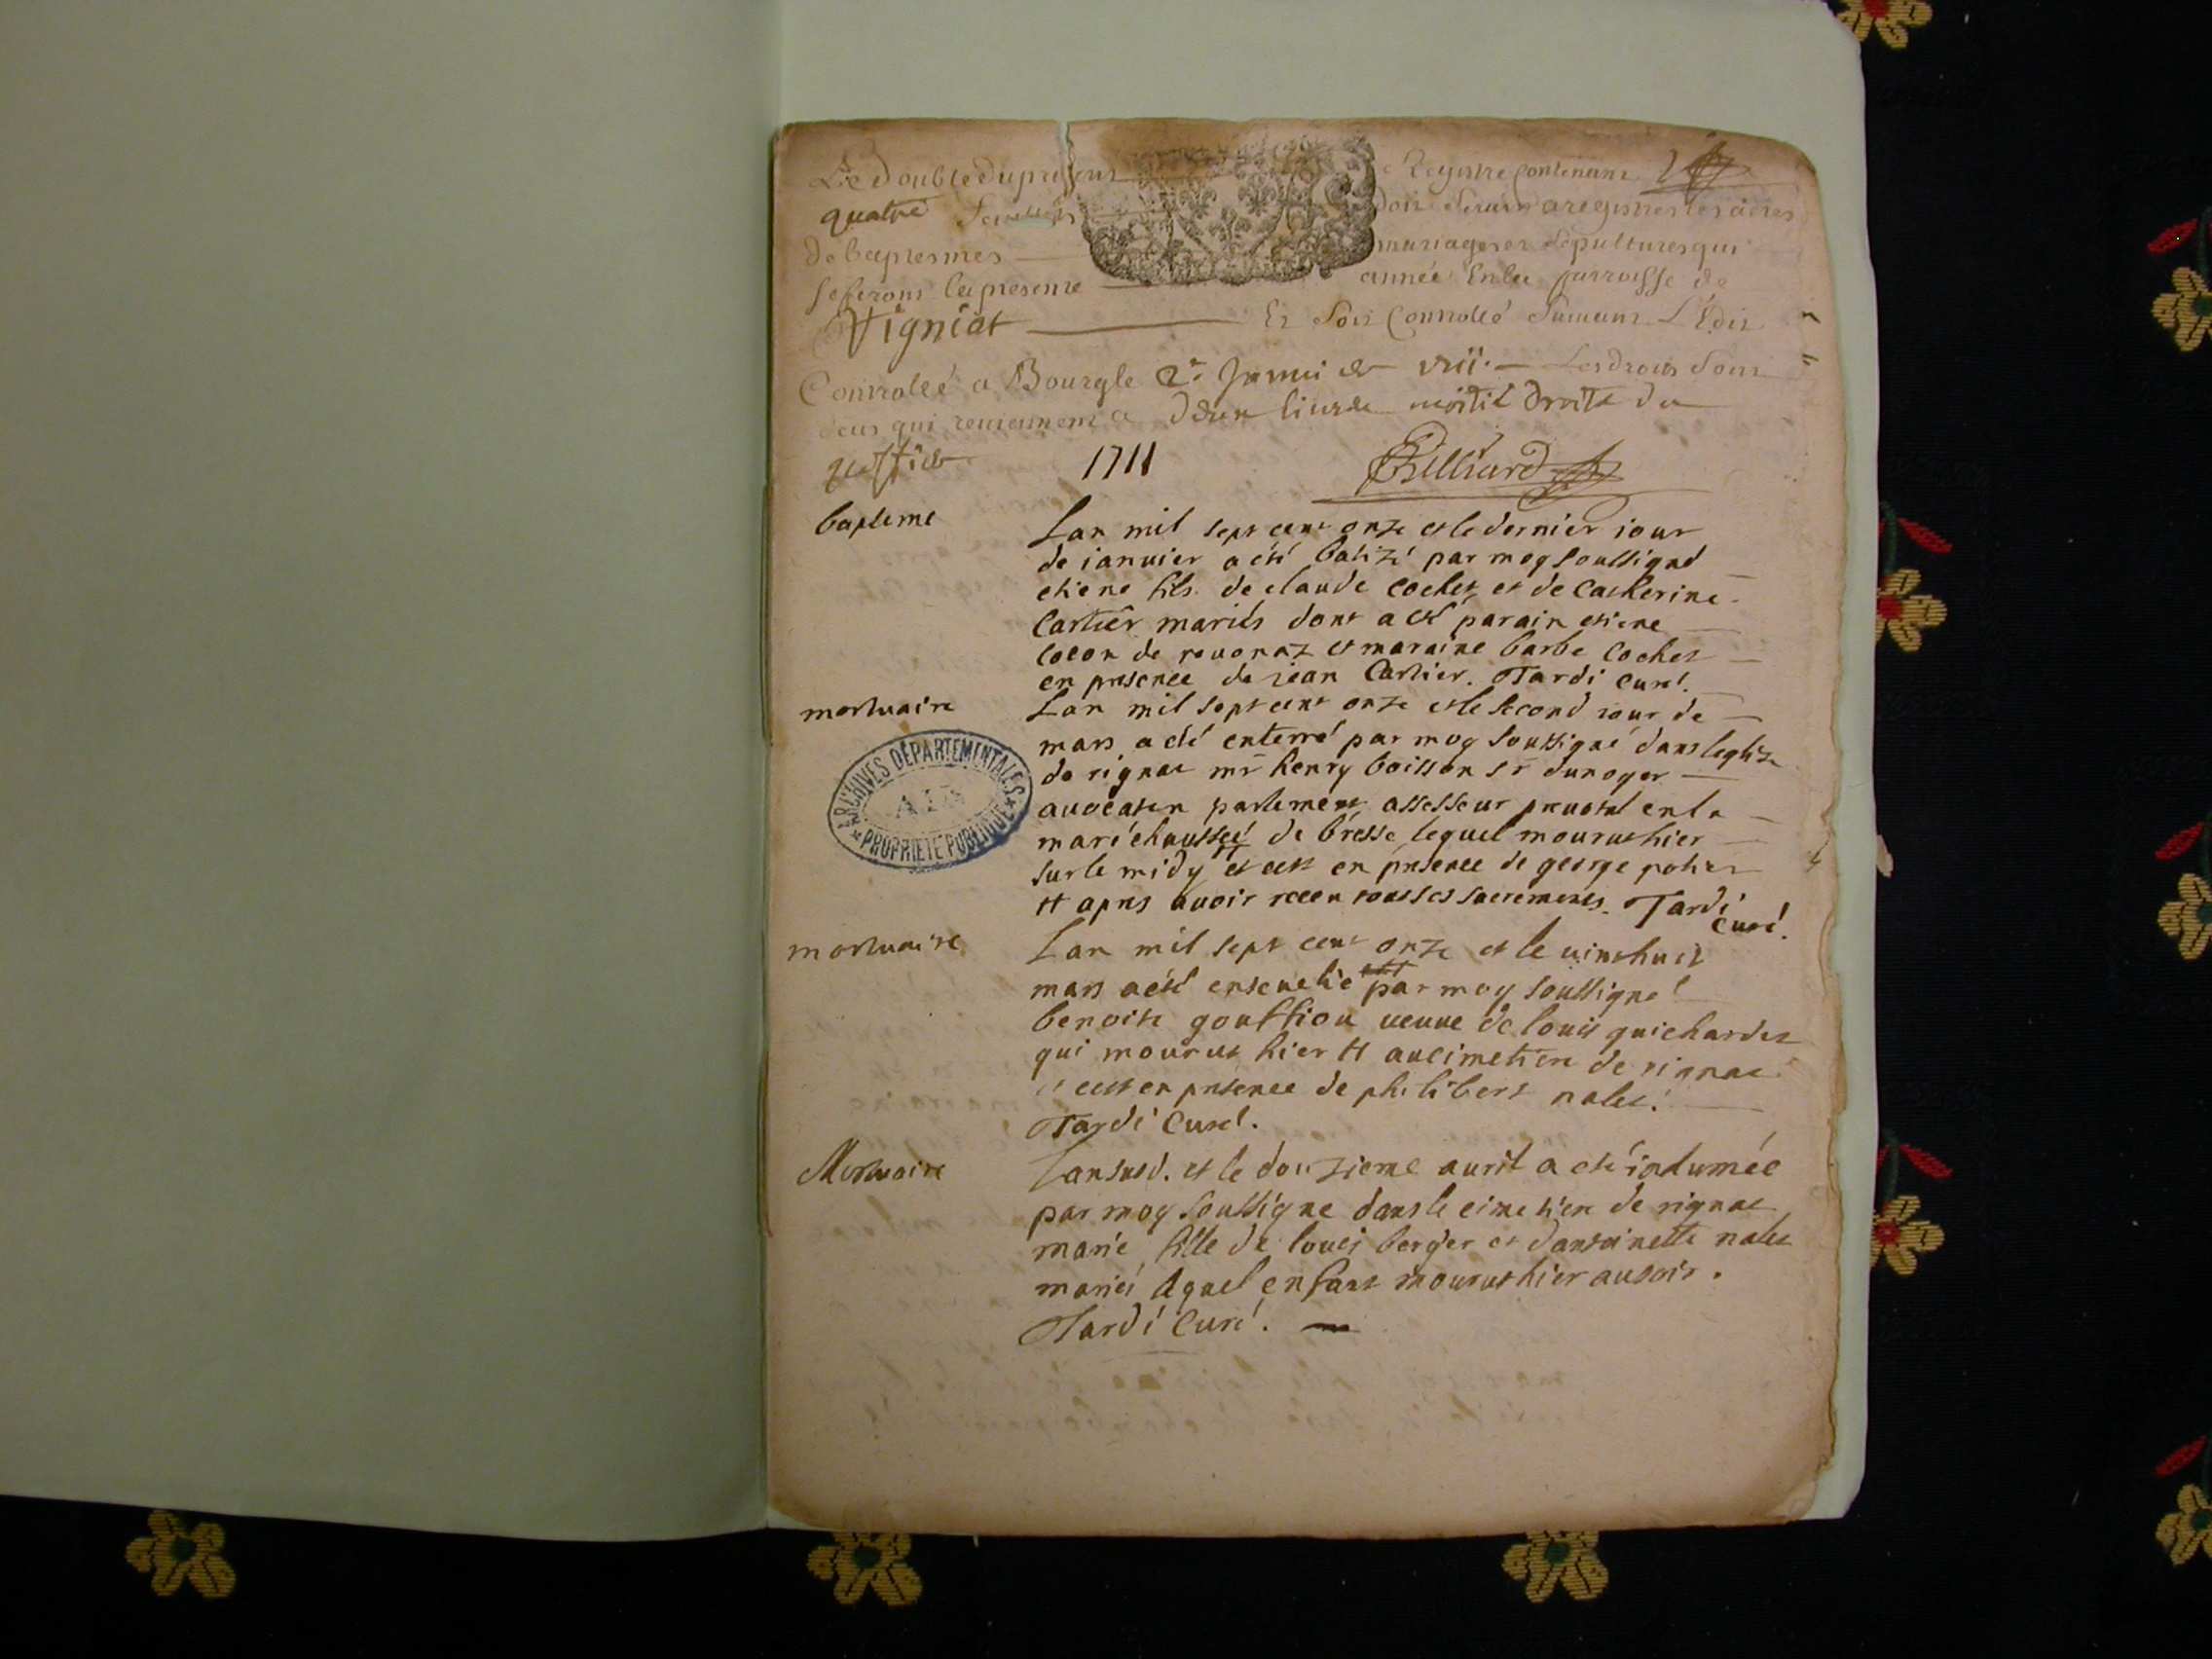 Le double du present Registre Contenant
quatre feuillets dont servir a registrer les actes
de baptesmes mariages et sepultures qui
se feront la presente année En la parroisse de
Vigniat Et Sera Controllé Suivant L'Edit
Controllé a Bourg le 2e Les droits Sont
ceux qui reviennent a moitié droits du
1711
Billiard
bapteme
Lan mil sept cent onze et le dernier iour
de ianuier a été batizé par moy soussigné
etiene fils de claude cochet et de Catherine
Cartier mariés dont a été parain etiene
cocon de reuonaz et maraine barbe cochet
en presence de jean Cartier. Tardi Curé.
mortuaire
Lan mil sept cent onze et le second iour de
mars a été enterré par moy soussigné dans leglize
de rignac mr henry boisson sr dunoyer
auocat en parlement assesseur preuostal en la
maréchaussée de bresse lequel mourut hier
sur le midy et cest en presence de george
et apres auoir receu tous ses sacrements. Tardi
Curé.
ARCHIVES DÉPARTEMENTALES
AIN
PROPRIÉTÉ PUBLIQUE
mortuaire
Lan mil sept cent onze et le vinthuit
mars a été enseuelie par moy soussigné
benoite gouffion ueuue de louis guichardet
qui mourut hier et au cimetiere de rignac
et cest en presence de philibert nalet.
Tardi Curé.
Mortuaire
Lan susd. et le douzieme auril a eté inhumée
par moy soussigne dans le cimetiere de rignac
marie fille de louis berger et dantoinette nalet
mariés lequel enfant mourut hier au soir.
Tardi Curé.